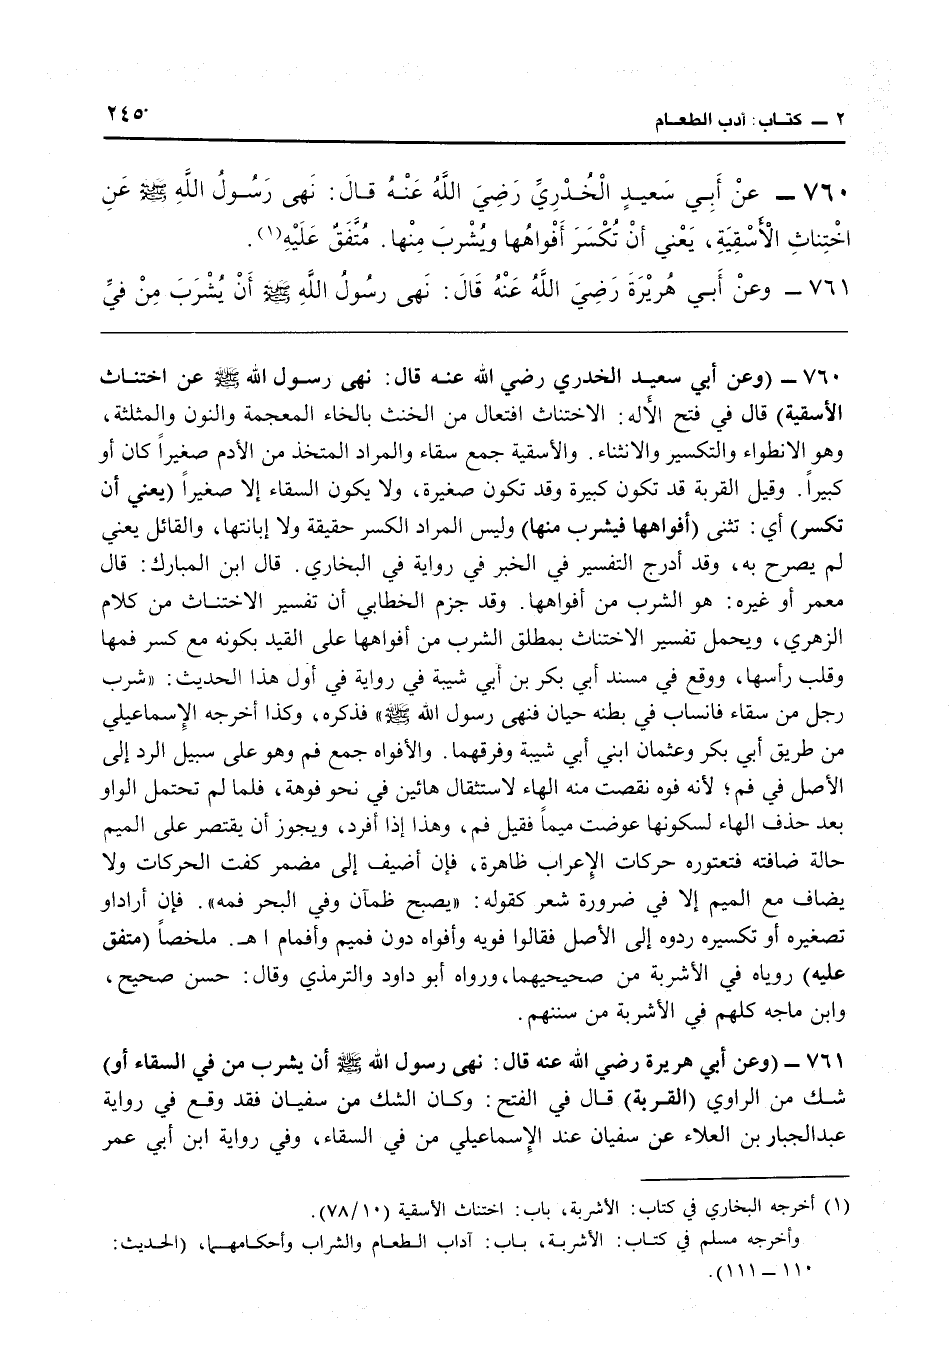 ٢ ــ كتـاب: أدب الطعـام
٢٤٥
٧٦٠ ــ عنْ أَبِـي سَعيـدٍ الْخُـدْرِيِّ رَضِيَ اللَّهُ عَنْـهُ قـالَ: نَهى رَسُـولُ اللَّهِ ﷺ عَنِ
اخْتِناثِ الْأَسْقِيَةِ، يَعْني أَنْ تُكْسَرَ أَفْواهُها ويُشْربَ مِنْها. مُتَّفَقٌ عَلَيْهِ(١).
٧٦١ ــ وعنْ أَبـي هُريْرَةَ رَضِيَ اللَّهُ عَنْهُ قَالَ: نَهى رسُولُ اللَّهِ ﷺ أَنْ يُشْرَبَ مِنْ فيِّ
٧٦٠ ــ (وعن أبي سعيـد الخدري رضي الله عنـه قال: نهى رسـول الله ﷺ عن اختنـاث
الأسقية) قال في فتح الأله: الاختناث افتعال من الخنث بالخاء المعجمة والنون والمثلثة،
وهو الانطواء والتكسير والانثناء. والأسقية جمع سقاء والمراد المتخذ من الأدم صغيراً كان أو
كبيراً. وقيل القربة قد تكون كبيرة وقد تكون صغيرة، ولا يكون السقاء إلا صغيراً (يعني أن
تكسر) أي: تثنى (أفواهها فيشرب منها) وليس المراد الكسر حقيقة ولا إبانتها، والقائل يعني
لم يصرح به، وقد أدرج التفسير في الخبر في رواية في البخاري. قال ابن المبارك: قال
معمر أو غيره: هو الشرب من أفواهها. وقد جزم الخطابي أن تفسير الاختنـاث من كلام
الزهري، ويحمل تفسير الاختناث بمطلق الشرب من أفواهها على القيد بكونه مع كسر فمها
وقلب رأسها، ووقع في مسند أبي بكر بن أبي شيبة في رواية في أول هذا الحديث: «شرب
رجل من سقاء فانساب في بطنه حيان فنهى رسول الله ﷺ» فذكره، وكذا أخرجه الإسماعيلي
من طريق أبي بكر وعثمان ابني أبي شيبة وفرقهما. والأفواه جمع فم وهو على سبيل الرد إلى
الأصل في فم؛ لأنه فوه نقصت منه الهاء لاستثقال هائين في نحو فوهة، فلما لم تحتمل الواو
بعد حذف الهاء لسكونها عوضت ميماً فقيل فم، وهذا إذا أفرد، ويجوز أن يقتصر على الميم
حالة ضافته فتعتوره حركات الإعراب ظاهرة، فإن أضيف إلى مضمر كفت الحركات ولا
يضاف مع الميم إلا في ضرورة شعر كقوله: «يصبح ظمآن وفي البحر فمه». فإن أراداو
تصغيره أو تكسيره ردوه إلى الأصل فقالوا فويه وأفواه دون فميم وأفمام ا هـ. ملخصاً (متفق
عليه) روياه في الأشربة من صحيحيهما، ورواه أبو داود والترمذي وقال: حسن صحيح،
وابن ماجه كلهم في الأشربة من سننهم.
٧٦١ ــ (وعن أبي هريرة رضي الله عنه قال: نهى رسول الله ﷺ أن يشرب من في السقاء أو)
شـك من الراوي (القـربة) قـال في الفتح: وكـان الشك من سفيـان فقد وقـع في رواية
عبدالجبار بن العلاء عن سفيان عند الإسماعيلي من في السقاء، وفي رواية ابن أبي عمر
(١) أخرجه البخاري في كتاب: الأشربة، باب: اختناث الأسقية (٧٨/١٠).
وأخرجه مسلم في كتـاب: الأشربـة، بـاب: آداب الـطعـام والشراب وأحكـامهـا، (الحـديث:
١١٠ ــ ١١١).